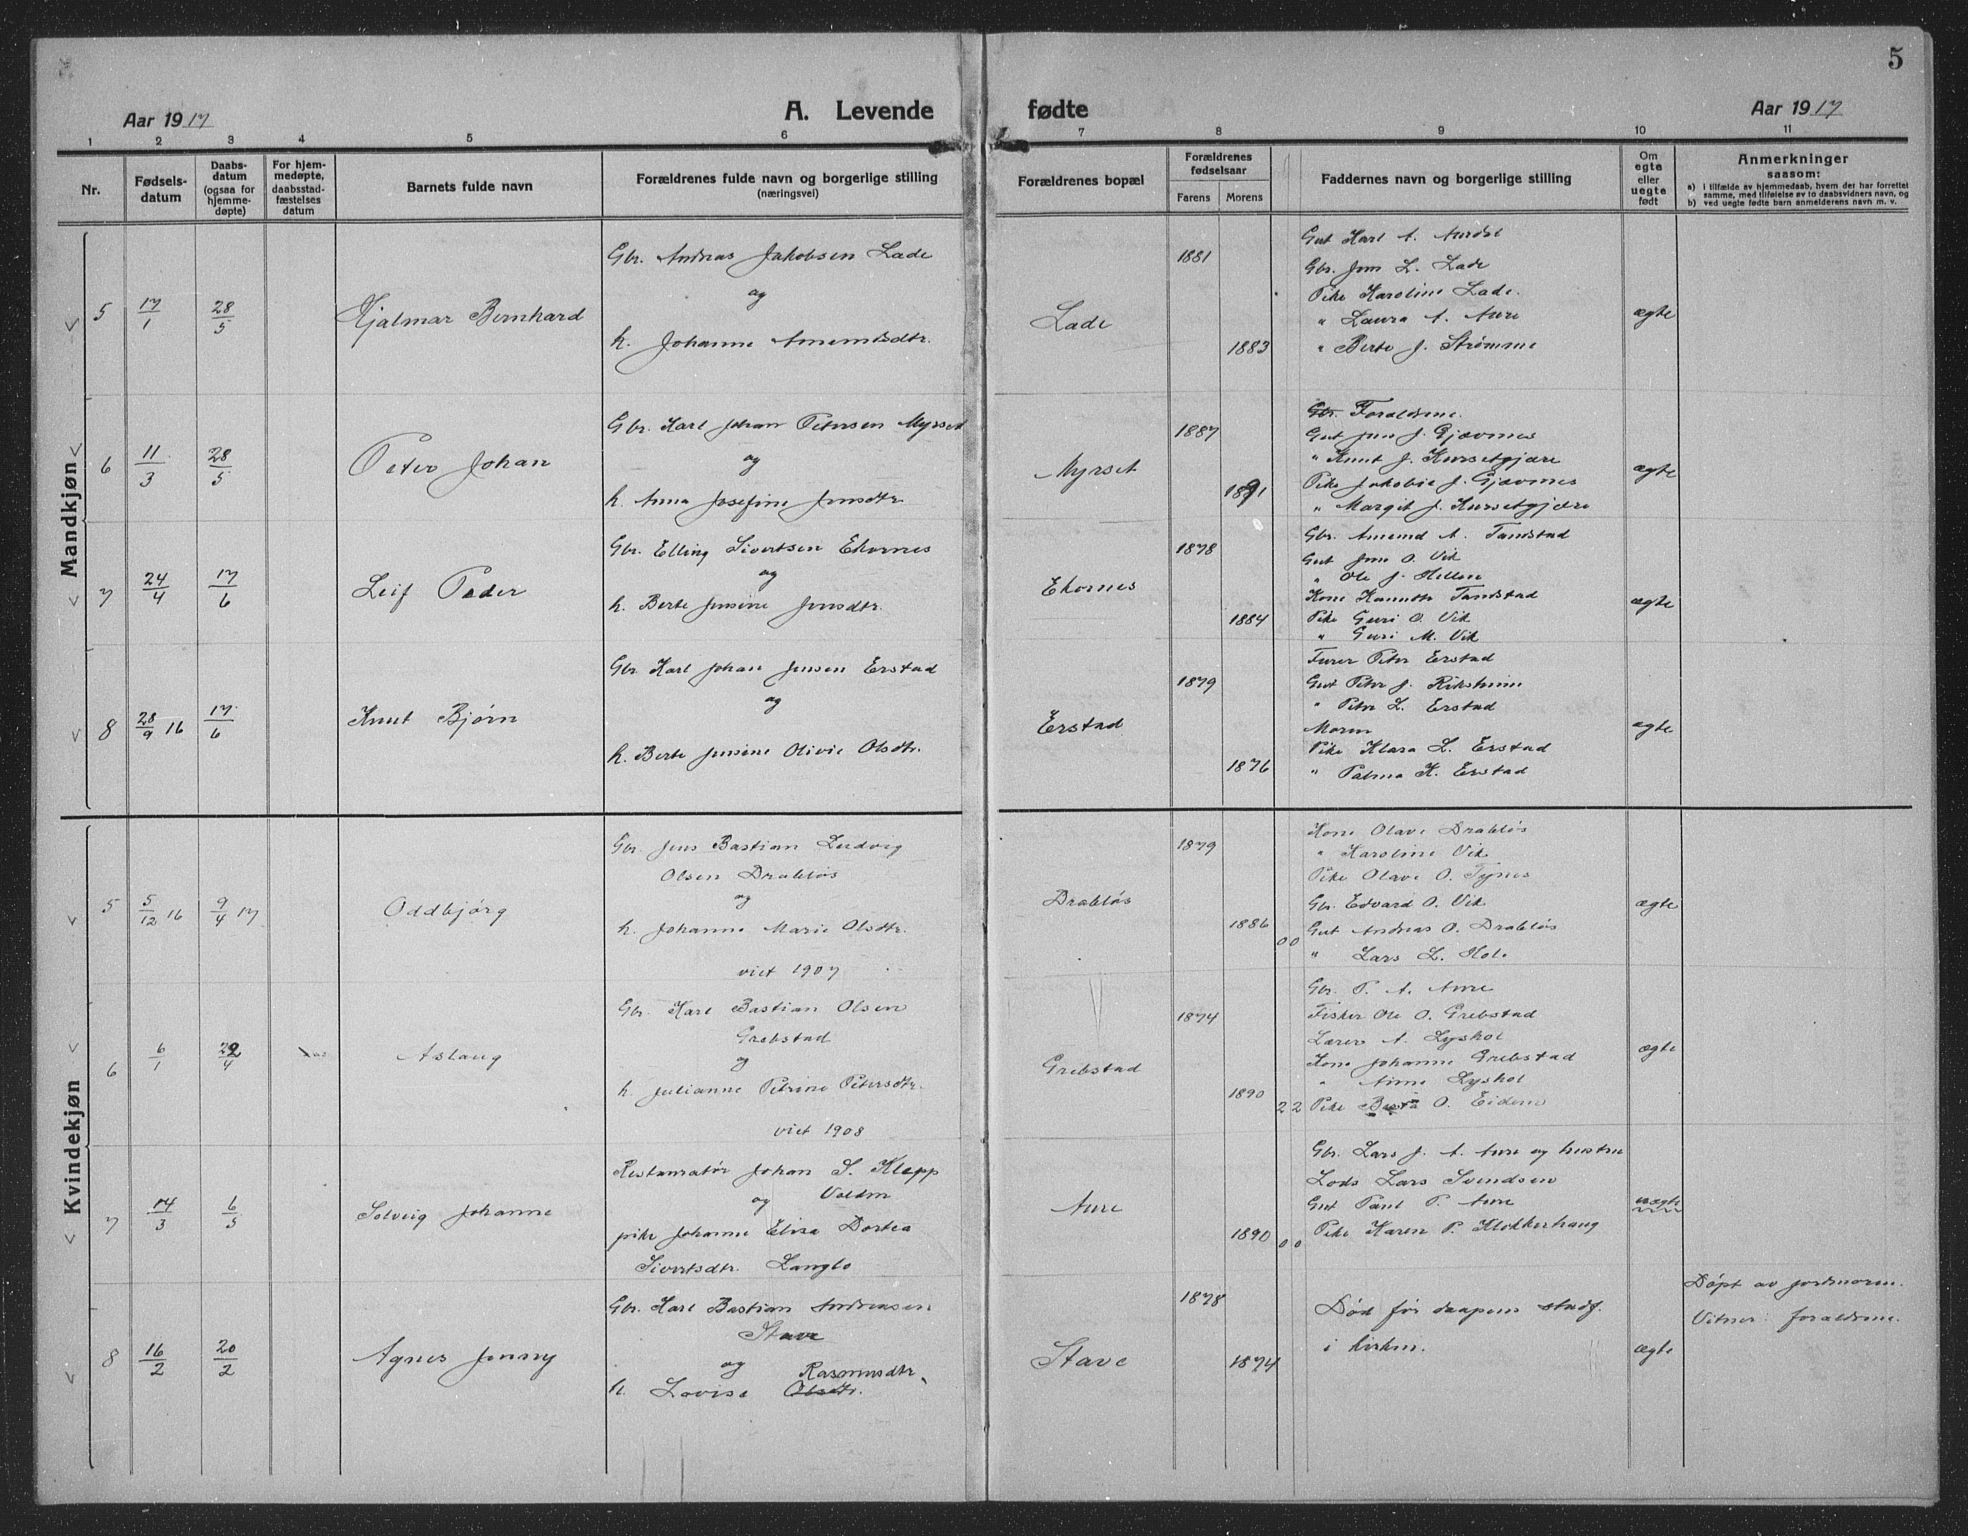 5
A. Levende fødte
Aar 1917
Aar 1917
1 2 3 4 5 6 7 8 9 10 11
Nr.
Fødsels-
datum
Daabs-
datum
(ogsaa for
hjemme-
døpte)
For hjem-
medøpte,
daabsstad-
fæstelses
datum
Barnets fulde navn
Forældrenes fulde navn og borgerlige stilling
(næringsvei)
Forældrenes bopæl
Forældrenes
fødselsaar
Farens Morens
Faddernes navn og borgerlige stilling
Om
egte
eller
uegte
født
Anmerkninger
saasom:
a) i tilfælde av hjemmedaab, hvem der har forrettet
samme, med tilføielse av to daabsvidners navn, og
b) ved uegte fødte barn anmelderens navn m. v.
Mandkjøn
5 17/1 28/5 Hjalmar Bernhard
Gbr. Andreas Jakobsen Lade
og
h. Johanne Amundsdtr.
Lade
1881
1883
Gut Karl A.
Gbr. Jens L. Lade
Pike Karoline Lade.
" Laura A. Aure
" Berte J. Strømme
ægte
6 11/3 28/5 Peter Johan
Gbr. Karl Johan Petersen Myrset
og
h. Anna Josefine Jensdtr.
Myrset
1887
1891
Gbr. Forældrene.
Gut Jens J. Gjævnes
" Knut J. Kursetgjære
Pike Jakobie J. Gjævnes
" Margit J. Kursetgjære
ægte
7 24/4 17/6 Leif Peder
Gbr. Elling Sivertsen Ekornes
og
h. Berte Jensine Jensdtr.
Ekornes
1878
1884
Gbr. Amund A. Tandstad
Gut Jens O. Vik
" Ole J. Hellen
Kone Tandstad
Pike Guri O. Vik
" Guri M. Vik
ægte
8 28/9 16 17/6 Knut Bjørn
Gbr. Karl Johan Jensen Erstad
og
h. Berte Jensine Olivie Olsdtr.
Erstad
1879
1876
Peter Erstad
Gut Peter J. Riksheim
" Peter L. Erstad
Moren
Pike Klara L. Erstad
" Palma K. Erstad
ægte
Kvindekjøn
5 5/12 16 9/4 17 Oddbjørg
Gbr. Jens Bastian Ludvig
Olsen Drabløs
og
h. Johanne Marie Olsdtr.
viet 1907
Drabløs
1879
1886
0 0
Kone Olave Drabløs
" Karoline Vik
Pike Olave O. Tynes
Gbr. Edvard O. Vik
Gut Andreas O. Drabløs
" Lars L. Hole
ægte
6 6/1 22/4 Aslaug
Gbr. Karl Bastian Olsen
Grebstad
og
h. Julianne Petrine Petersdtr.
viet 1908
Grebstad
1874
1890
2 2
Gbr. P. A. Aure
Fisker Ole O. Grebstad
Lærer A. Lyshol
Kone Johanne Grebstad
" Anne Lyshol
Pike Berta O. Eidem
ægte
7 14/3 6/5 Solveig Johanne
Restauratør Johan S. Klepp
og Volden
pike Johanne Elisa Dortea
Sivertsdtr. Langlo
Aure
1890
0 0
Gbr. Lars J. A. Aure og hustru
Lods Lars Svendsen
Gut Paul P. Aure
Pike Karen P. Klokkerhaug
uægte
8 16/2 20/2 Agnes Jenny
Gbr. Karl Bastian Andreasen
Stave
og Rasmusdtr.
h. Lovise Olsdtr.
Stave
1878
1874
Død før daapens stadf.
i kirken.
ægte
Døpt av jordmoren.
Vitner: forældrene.